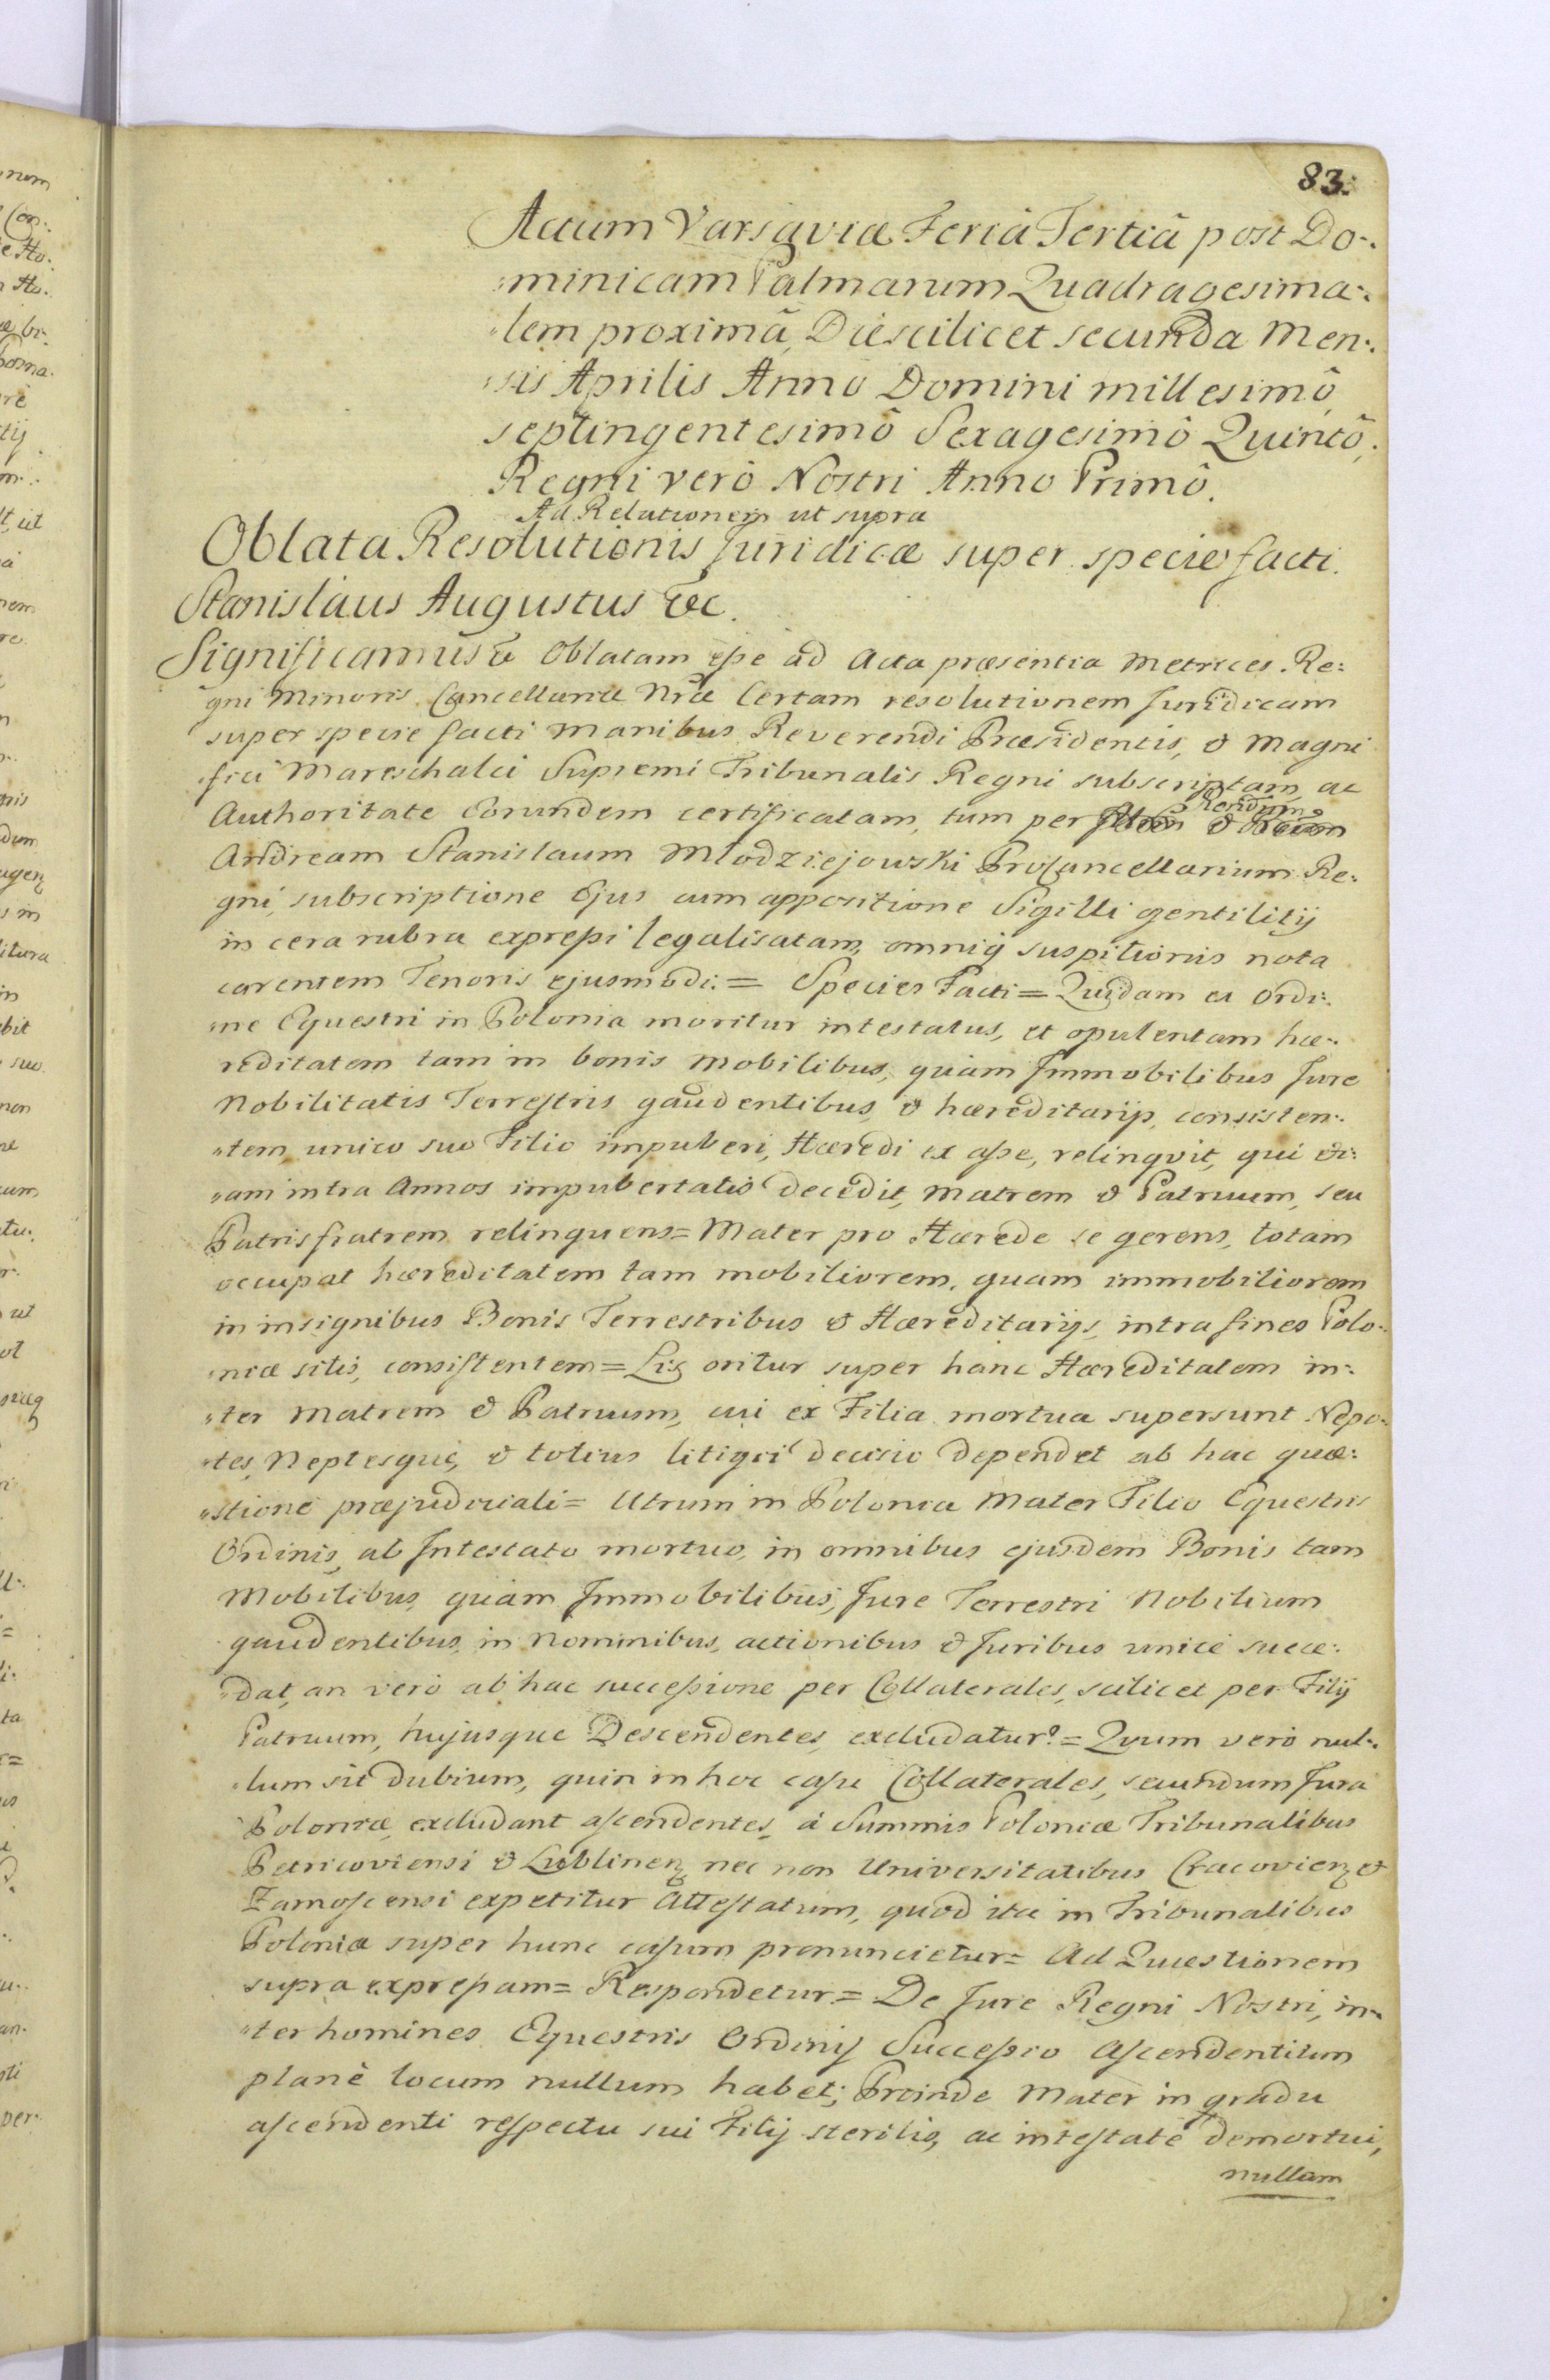 83.
Actum Varsaviæ Feriâ Tertiâ post Do-
minicam Palmarum Quadragesima-
lem proximâ, Die scilicet secunda Men-
sis Aprilis Anno Domini millesimô
septingentesimô Sexagesimô Quintô,
Regni verò Nostri Anno Primô.
Ad Relationem ut supra
Oblata Resolutionis Juridicæ super specie facti.
Stanislaus Augustus &c.
Significamus &c Oblatam esse ad Acta præsentia Metrices Re:
gni Minoris Cancellariæ Nræ Certam resolutionem Juridicam
super specie facti Manibus Reverendi Præsidentis, & Magni
fici Mareschalci Supremi Tribunalis Regni subscriptam, ac
Authoritate Eorundem certificatam, tum per Rendum
Andream Stanislaum Młodziejowski ProCancellarium Re:
gni, subscriptione Ejus cum appositione Sigilli gentilitij
in cera rubra expressi legalisatam, omniq suspitionis nota
carentem Tenoris ejusmodi: = Species Facti = Quidam ex Ordi:
ne Equestri in Polonia moritur intestatus, et opulentam hæ-
reditatem tam in bonis Mobilibus, quàm Immobilibus Jure
Nobilitatis Terrestris gaudentibus, & hæreditarijs, consisten-
tem, unico suo Filio impuberi, Hæredi ex asse, relinqvit, qui eti:
am intra Annos impubertatis decedit, Matrem & Patruum, seu
Patris fratrem relinquens = Mater pro Hærede se gerens, totam
occupat hæreditatem tam mobiliorem, quam immobiliorem
in insignibus Bonis Terrestribus & Hæreditarijs, intra fines Polo-
niæ sitis, consistentem = Lis oritur super hanc Hæreditatem in-
ter Matrem & Patruum, cui ex Filia mortua supersunt Nepo-
tes, Neptesque, & totius litigii decisio dependet ab hac quæ:
stione præjudiciali = Utrum in Polonia Mater Filio Equestris
Ordinis, ab Intestato mortuo, in omnibus ejusdem Bonis tam
Mobilibus, quàm Immobilibus, Jure Terrestri Nobilium
gaudentibus, in Nominibus, actionibus & Juribus unicè succe:
dat, an verò ab hac successione per Collaterales, scilicet per Filij
Patruum, hujusque Descendentes, excludatur? = Quum verò nul-
lum sit dubium, quin in hoc casu Collaterales, secundum Jura
Poloniæ, excludant ascendentes, à Summis Poloniæ Tribunalibus
Petricoviensi & Lublinen, nec non Universitatibus Cracovien &
Zamoscensi expetitur Attestatum, quod ita in Tribunalibus
Poloniæ super hunc casum pronuncietur = Ad Quæstionem
supra expressam = Respondetur = De Jure Regni Nostri, in-
ter homines Equestris Ordinis Successio Ascendentium
planè locum nullum habet; Proinde Mater in gradu
ascendenti respectu sui Filij sterilis, ac intestatè demortui,
nullam